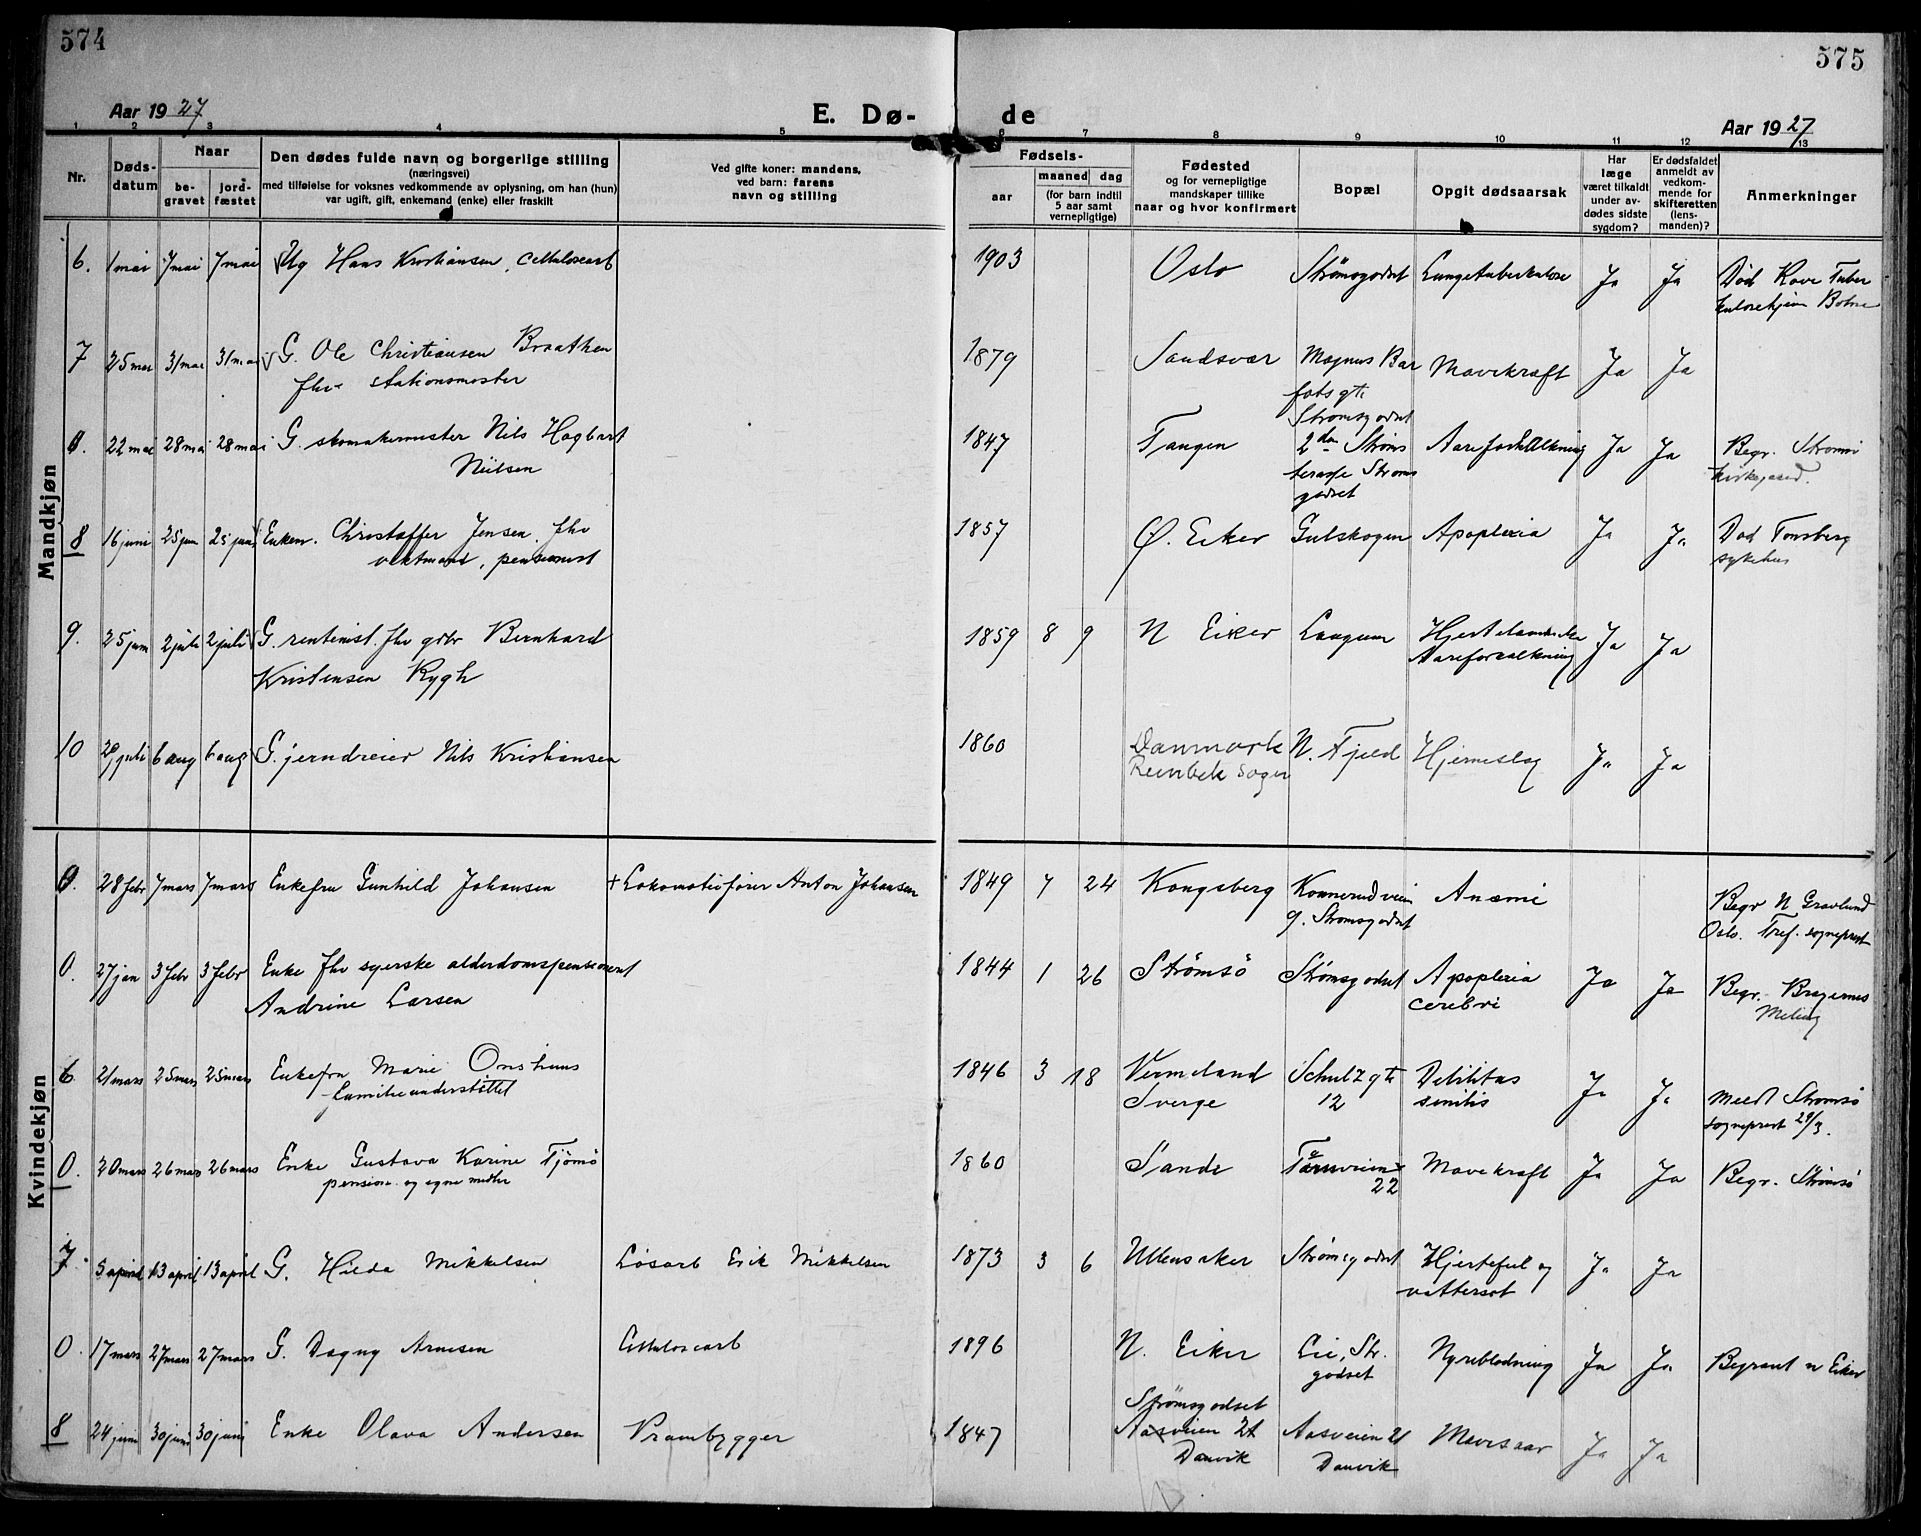 574
575
Aar 1927
E. Dø-
de
Aar 1927
1 2 3 4 5 6 7 8 9 10 11 12 13
Nr.
Døds-
datum
Naar
be-
gravet
jord-
fæstet
Den dødes fulde navn og borgerlige stilling
(næringsvei)
med tilføielse for voksnes vedkommende av oplysning, om han (hun)
var ugift, gift, enkemand (enke) eller fraskilt
Ved gifte koner: mandens,
ved barn: farens
navn og stilling
Fødsels-
aar
maaned dag
(for barn indtil
5 aar samt
vernepligtige)
Fødested
og for vernepligtige
mandskaper tillike
naar og hvor konfirmert
Bopæl
Opgit dødsaarsak
Har
læge
været tilkaldt
under av-
dødes sidste
sygdom?
Er dødsfaldet
anmeldt av
vedkom-
mende for
skifteretten
(lens-
manden)?
Anmerkninger
Mandkjøn
6. 1 mai 7 mai 7 mai Ug Hans Kristiansen, cellulosearb 1903 Oslo Strømsgodset Lungetuberkulose Ja Ja Død Rove Tuber
kulosehjem Botne
7 25 mai 31 mai 31 mai G. Ole Christiansen Braathen 1879 Sandsvær Magnus Bar Mavekræft Ja Ja
fhv. stationsmester fots gt.
Strømsgodset
0. 22 mai 28 mai 28 mai G. skomakermester Nils Hagbart 1847 Tangen 2den Strøms Aareforkalkning Ja Ja Begr. Strømsø
Nilsen terasse Strøms kirkegaard.
godset
8 16 juni 25 juni 25 juni Enkem. Christoffer Jensen, fhv 1857 Ø. Eiker Gulskogen Apoplexia Ja Ja Død Tønsberg
vektmand, pensionist sykehus
9. 25 juni 2 juli 2 juli G. rentenist. fhv gbr Bernhard 1859 8 9 N Eiker Langum Hjertelammelse Ja Ja
Kristensen Rygh Aareforkalkning
10 29 juli 6 aug 6 aug G. jerndreier Nils Kristiansen 1860 Danmark N. Fjeld Hjerneslag Ja Ja
Reinbek Sogn
Kvindekjøn
0. 28 febr 7 mars 7 mars Enkefru Gunhild Johansen + Lokomotivfører Anton Johansen 1849 7 24 Kongsberg Konnerudveien Anæmi
9. Strømsgodset Begr N Gravlund
Oslo. Tref. sogneprest
0. 27 jan 3 febr 3 febr Enke fhv syerske alderdomspensionert 1844 1 26 Strømsø Strømsgodset Apoplexia Ja Ja Begr. Bragernes
Andrine Larsen cerebri Meling
6 21 mars 25 mars 25 mars Enkefru Marie Onshuus 1846 3 18 Vermeland Schultz gt. Debilitas Ja Ja
familieunderstøttet Sverge 12 senilis meedt Strømsø
sogneprest 29/3.
0. 20 mars 26 mars 26 mars Enke Gustava Karine Tjømø 1860 Sande Tornveien Mavekræft Ja Ja Begr. Strømsø
pension. og egne midler 22
7 5 april 13 april 13 april G. Hilda Mikkelsen Løsarb Erik Mikkelsen 1873 3 6 Ullensaker Strømsgodset Hjertefeil og Ja Ja
vattersot
0. 17 mars 27 mars 27 mars G. Dagny Arnesen Cellulosearb 1896 N. Eiker Lie, Str. Nyreblødning Ja Ja Begravet N Eiker
godset
8 24 juni 30 juni 30 juni Enke Olava Andersen Prambygger 1847 Strømsgodset
Aasveien 21 Aasveien 21 Mavesaar Ja Ja
Danvik Danvik